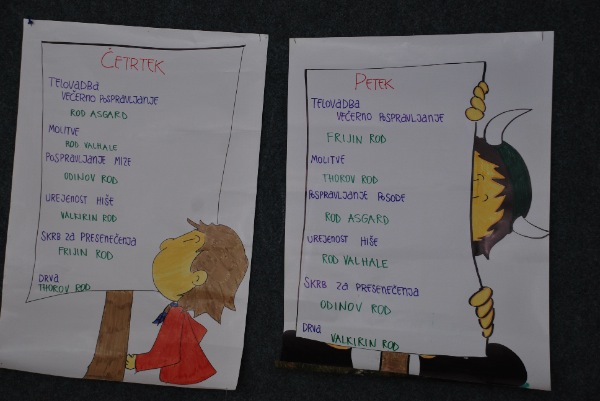 ČETRTEK
TELOVADBA
VEČERNO POSPRAVLJANJE
ROD ASGARD
MOLITVE
ROD VALHALE
POSPRAVLJANJE MIZE
ODINOV ROD
UREJENOST HIŠE
VALKIRIN ROD
SKRB ZA PRESENEČENJA
FRIJIN ROD
DRVA
THOROV ROD
PETEK
TELOVADBA
VEČERNO POSPRAVLJANJE
FRIJIN ROD
MOLITVE
THOROV ROD
POSPRAVLJANJE POSODE
ROD ASGARD
UREJENOST HIŠE
ROD VALHALE
SKRB ZA PRESENEČENJA
ODINOV ROD
DRVA
VALKIRIN ROD